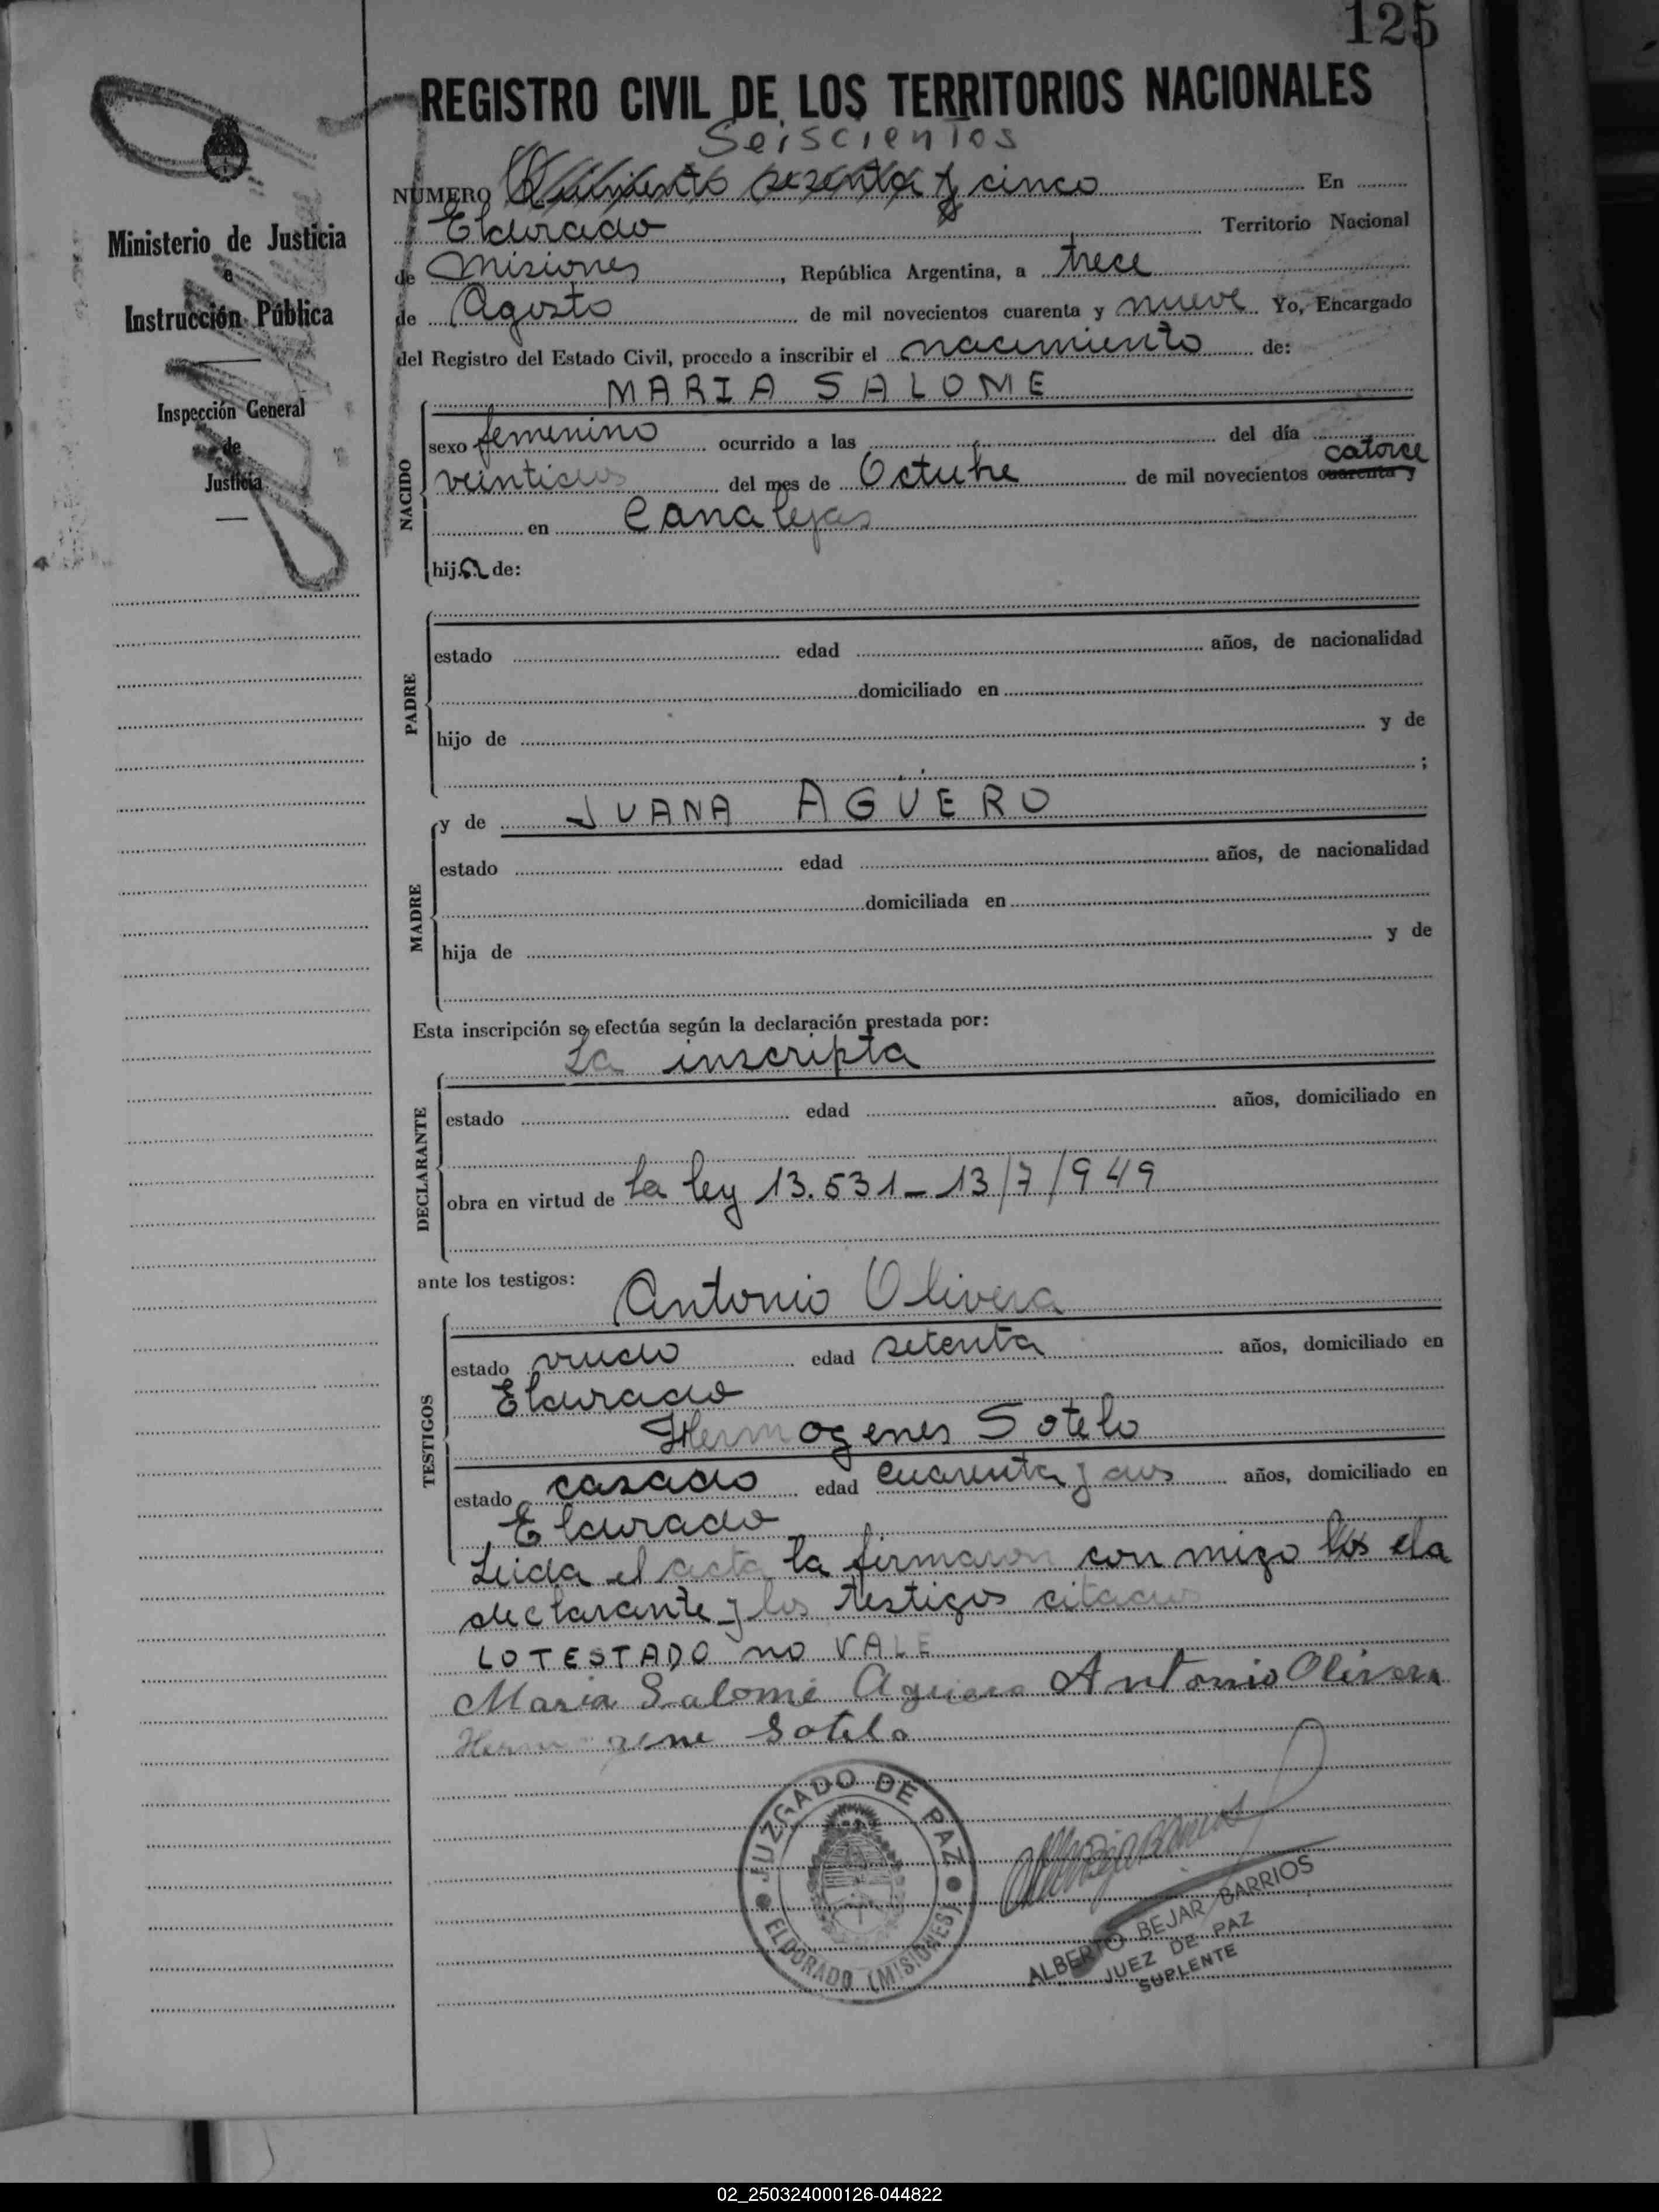 125
REGISTRO CIVIL DE LOS TERRITORIOS NACIONALES
Seiscientos
NÚMERO Quinientos sesenta y cinco En
Eldorado Territorio Nacional
de Misiones, República Argentina, a trece
de Agosto de mil novecientos cuarenta y nueve Yo, Encargado
del Registro del Estado Civil, procedo a inscribir el nacimiento de:
MARIA SALOME
sexo femenino ocurrido a las del día
catorce
veintidos del mes de Octubre de mil novecientos cuarenta y
en Canalejas
hija de:
NACIDO
estado edad años, de nacionalidad
domiciliado en
hijo de y de
;
PADRE
y de JUANA AGÜERO
estado edad años, de nacionalidad
domiciliada en
hija de y de
MADRE
Esta inscripción se efectúa según la declaración prestada por:
La inscripta
estado edad años, domiciliado en
obra en virtud de la ley 13.531_13/7/949
DECLARANTE
ante los testigos:
Antonio Olivera
estado viudo edad setenta años, domiciliado en
Eldorado
Hermogenes Sotelo
estado casado edad cuarenta y dos años, domiciliado en
Eldorado
TESTIGOS
Leida el acta la firmaron con migo los ela
declarante y los testigos citados
LO TESTADO no VALE
Maria Salomé Aguero Antonio Olivera
Hermogene Sotelo
Ministerio de Justicia
e
Instrucción Pública
Inspección General
de
Justicia
JUZGADO DE PAZ
ELDORADO (MISIONES)
ALBERTO BEJAR BARRIOS
JUEZ DE PAZ
SUPLENTE
02_250324000126-044822